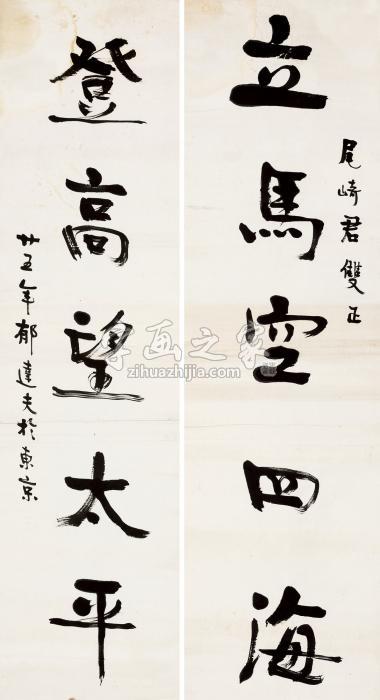 尾崎君雙正
立馬空四海
登高望太平
廿五年郁達夫於東京
字画之家
zihuazhijia.com